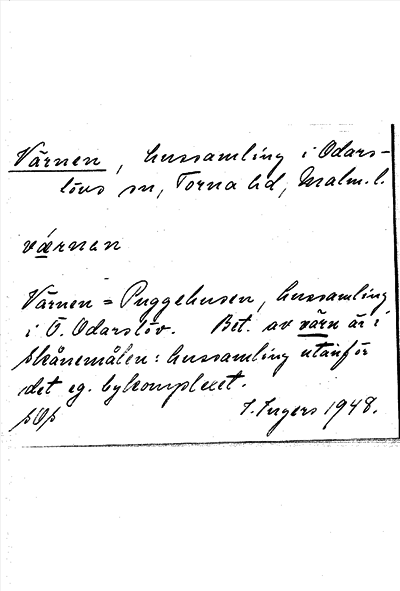 Värnen, hussamling i Odars-
lövs sn, Torna hd, Malm. l.
værnen
Värnen = Puggehusen, hussamling
i Ö. Odarslöv. Bet. av värn är i
skånemålen: hussamling utanför
det eg. bykomplexet.
I. Ingers 1948.